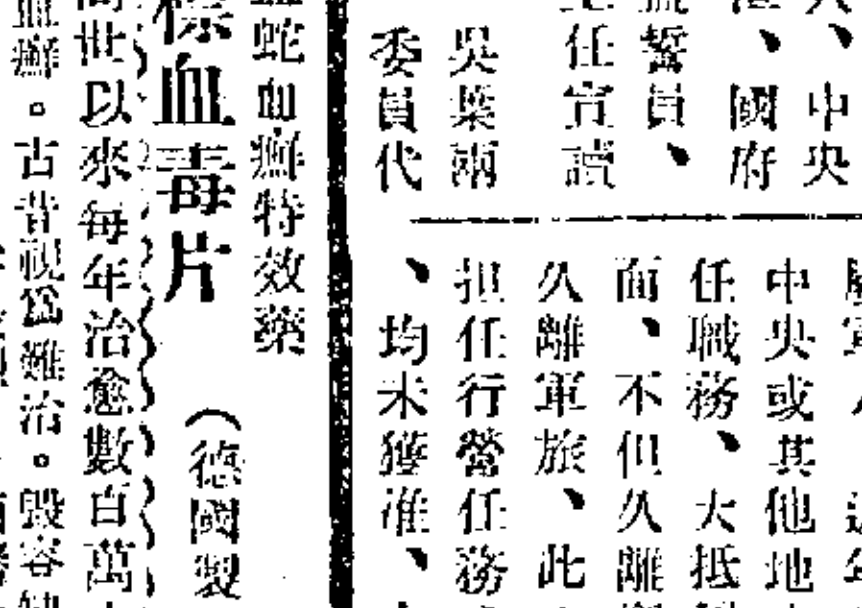 、中央
、國府
誓員、
任宣讀
吳葉兩
委員代
中央或其他地
任職務、大抵
面、不但久離
久離軍旅、此
担任行營任務
、均未獲准、
蛇血癬特效藥
標血毒片
(德國製
世以來每年治愈數百萬
血癬。古昔視爲難治。毀容